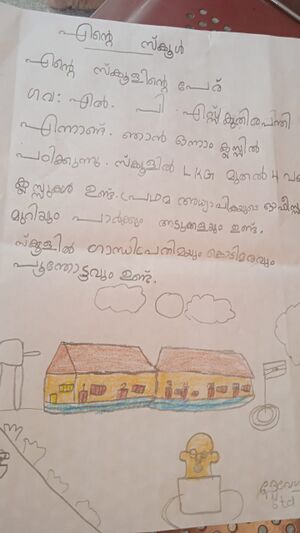 എന്റെ സ്കൂൾ
എന്റെ സ്കൂളിന്റെ പേര്
ഗവ: എൽ. പി. എസ്സ്
എന്നാണ്. ഞാൻ ഒന്നാം ക്ലാസ്സിൽ
പഠിക്കുന്നു. സ്കൂളിൽ LKG മുതൽ 4 വരെ
ക്ലസ്സുകൾ ഉണ്ട്. പ്രഥമ അധ്യാപികയുടെ ഓഫീസ്
മുറിയും പാർക്കും അടുക്കളയും ഉണ്ട്.
സ്കൂളിൽ ഗാന്ധിപ്രതിമയും കൊടിമരവും
പൂന്തോട്ടവും ഉണ്ട്.
std